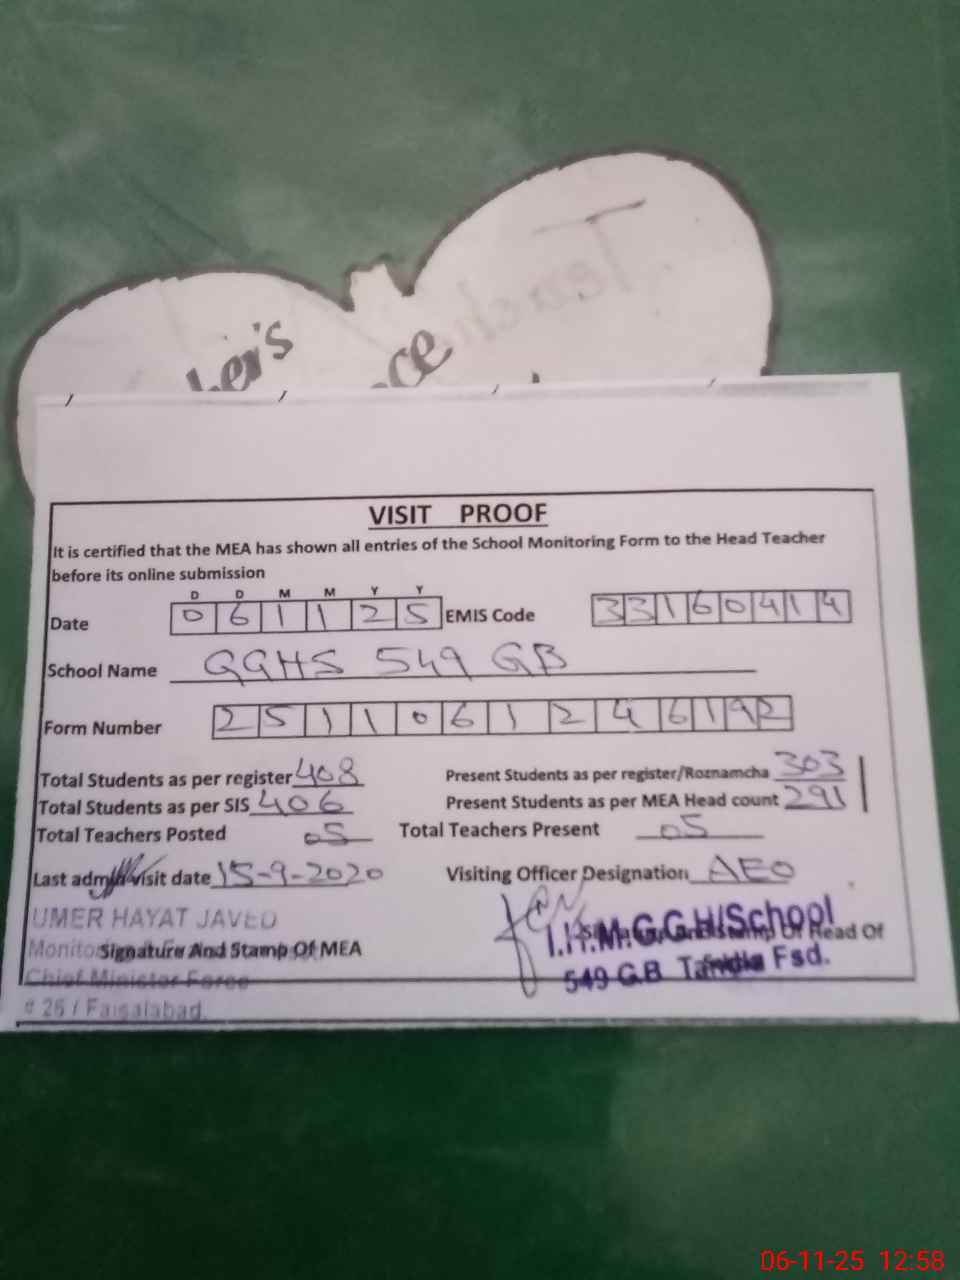 Teach
her's
ce
VISIT PROOF
It is certified that the MEA has shown all entries of the School Monitoring Form to the Head Teacher
before its online submission
D D M M Y Y
Date 0 6 1 1 2 5 EMIS Code 3 3 1 6 0 4 1 4
School Name GGHS 549 GB
Form Number 2 5 1 1 0 6 1 2 4 6 1 9 2
Total Students as per register 408 Present Students as per register/Roznamcha 303
Total Students as per SIS 406 Present Students as per MEA Head count 291
Total Teachers Posted 05 Total Teachers Present 05
Last admn visit date 15-9-2020 Visiting Officer Designation AEO
UMER HAYAT JAVED
Signature And Stamp Of MEA
Head Of
Chief Minister Force
# 26 / Faisalabad
G.G.H/School
549 G.B Fsd.
06-11-25 12:58